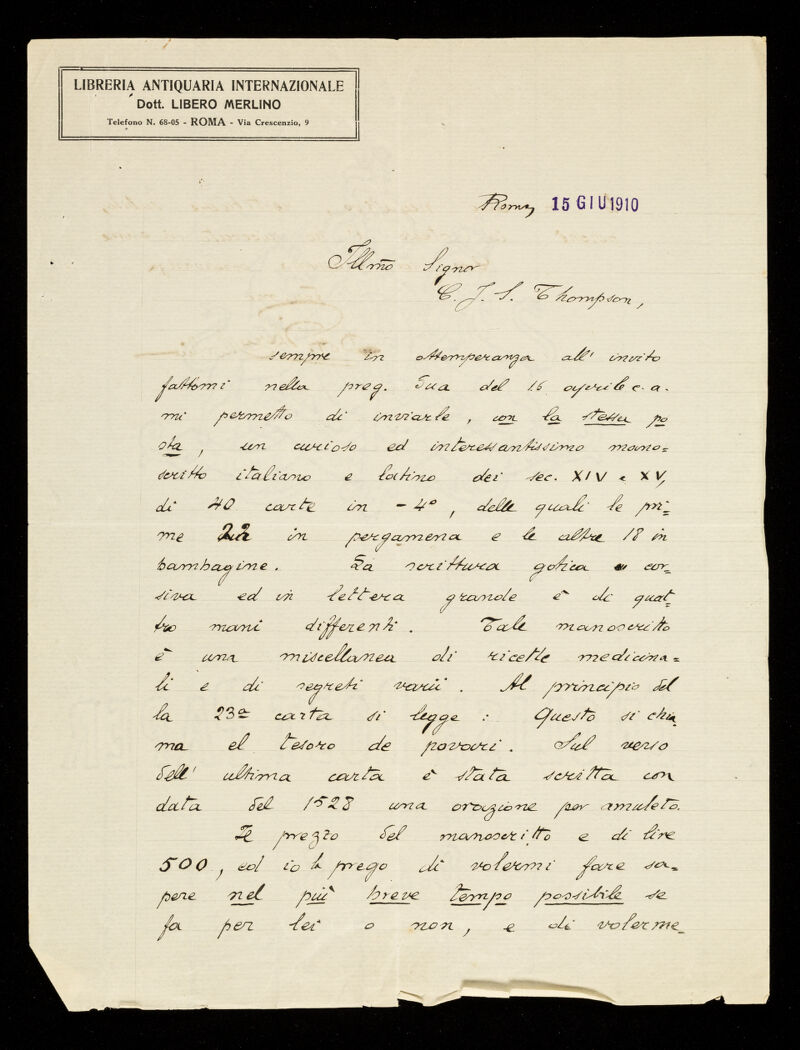 LIBRERIA ANTIQUARIA INTERNAZIONALE
Dott. LIBERO MERLINO
Telefono N. 68-05 - ROMA - Via Crescenzio, 9
Roma, 15 GIU 1910
Illmo Signor
C. J. S. Thompson,
sempre in ottemperanza all' invito
fattomi nella preg. Sua del 16 aprile c. a.
mi permetto di inviarle, con la stessa po
sta, un curioso ed interessantissimo mano=
scritto italiano e latino dei sec. XIV e XV,
di 40 carte in -4°, delle quali le pri=
me 22 in pergamena e le altre 18 in
bambagine. La scrittura gotica cor=
siva ed in lettera grande è di quat=
tro mani differenti. Tale manoscritto
è una miscellanea di ricette medicina=
li e di segreti varii. Al principio del
la 23a carta si legge: Questo si chia
ma el tesoro de povari. Sul verso
dell' ultima carta è stata scritta con
data del 1528 una orazione per amuleto.
Il prezzo del manoscritto e di lire
500, ed io la prego di volermi fare sa=
pere nel più breve tempo possibile se
fa per lei o non, e di volerme=